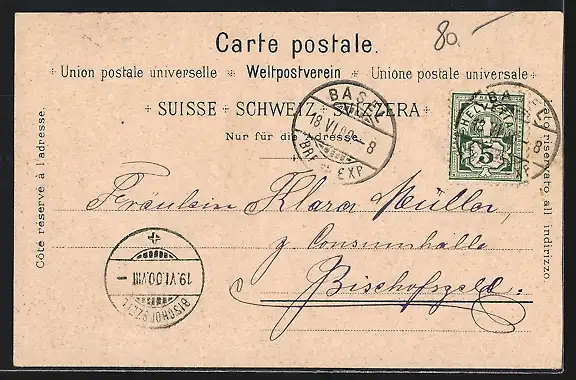 80.-
Carte postale.
Union postale universelle Weltpostverein Unione postale universale
SUISSE SCHWEIZ SVIZZERA
Nur für die Adresse.
Côté réservé à l'adresse.
Lato riservato all indirizzo.
BASEL
18.VI.00.-8
BRF. EXP.
BASEL
8
5
Fräulein Klara Müller,
z. Consumhalle
Bischofszell.
19.VI.00.VIII
BISCHOFSZELL